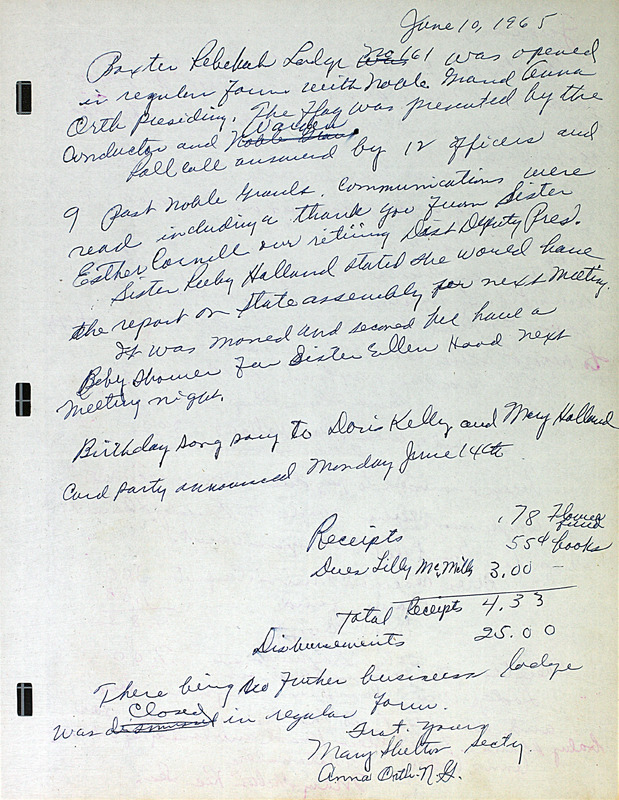 June 10, 1965
Baxter Rebekah Lodge No 161 was opened
in regular form with Noble Grand Anna
Orth Presiding. The Flag was presented by the
Conductor and Noble Grand Warden
Roll call answered by 12 officers and
9 Past Noble Grands. Communications were
read including a thank you from Sister
Esther Cornell our retiring Dist Deputy Pres.
Sister Reby Holland stated she would have
the report on State assembly for next Meeting.
It was moved and second we have a
Baby Shower for Sister Ellen Hood next
Meeting night.
Birthday song sang to Doris Kelly and Mary Holland
Card party announced Monday June 14th
.78 Flower fund
Receipts 55¢ books
Dues Lilly McMills 3.00
Total Receipts 4.33
Disbursements 25.00
There being no Futher business lodge
was dismissed Closed in regular form.
Frat. yours
Mary Shelton Secty.
Anna Orth N.G.